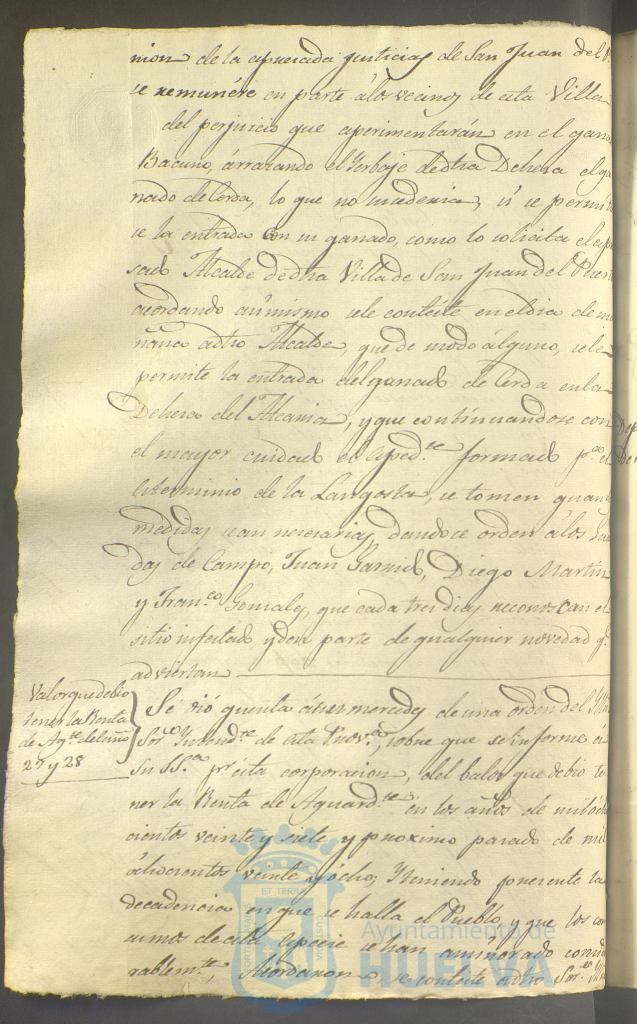 nion de la apreciada justicias de San Juan del P
se remunére en parte á los vecinos de esta Villa
del perjuicio que esperimentarán en el gana
Bacuno, árrazando el Yerbaje de dha Dehesa el ga
nado de Cerda, lo que no sucederia, si se permi
se la entrada con su ganado, como lo solicita el
sado Alcalde de dha Villa de San Juan del Puer
acordando asimismo se le conteste en el dia de ma
ñana a dho Alcalde, que de modo álguno, se le
permite la entrada del ganado de Cerda en la
Dehesa del Alcania, y que continuandose con
el mayor cuidado el Esped.te formado p.a el
Esterminio de la Langosta, se tomen quan
medidas sean necesarias, dandoce orden á los Gua
das de Campo, Juan Garrido, Diego Martin
y Fran.co Gonzales, que cada tres dias reconoscan el
sitio infestado, y den parte de qualquier novedad q.e
adviertan
Valor que debio
tener la Renta
de Ag.te del año
27 y 28
Se vió quenta á sus mercedes de una orden del
Sor Yntend.te de esta Prov.a, sobre que se informe á
su SS.a pr esta corporacion, del balor que debio te
ner la Renta de Aguard.te en los años de mil ocho
cientos veinte y siete y proximo pasado de mil
óchocientos veinte y ócho; Y teniendo presente la
decadencia en que se halla el Pueblo, y que los con
sumos de esta especie se han aminorado conside
rablem.te, Acordaron se conteste a dho Sor
ET TERRÆ
Ayuntamiento de
HUELVA